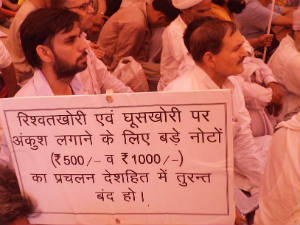 रिश्वतखोरी एवं घूसखोरी पर
अंकुश लगाने के लिए बड़े नोटों
(₹500/- व ₹1000/-)
का प्रचलन देशहित में तुरन्त
बंद हो।